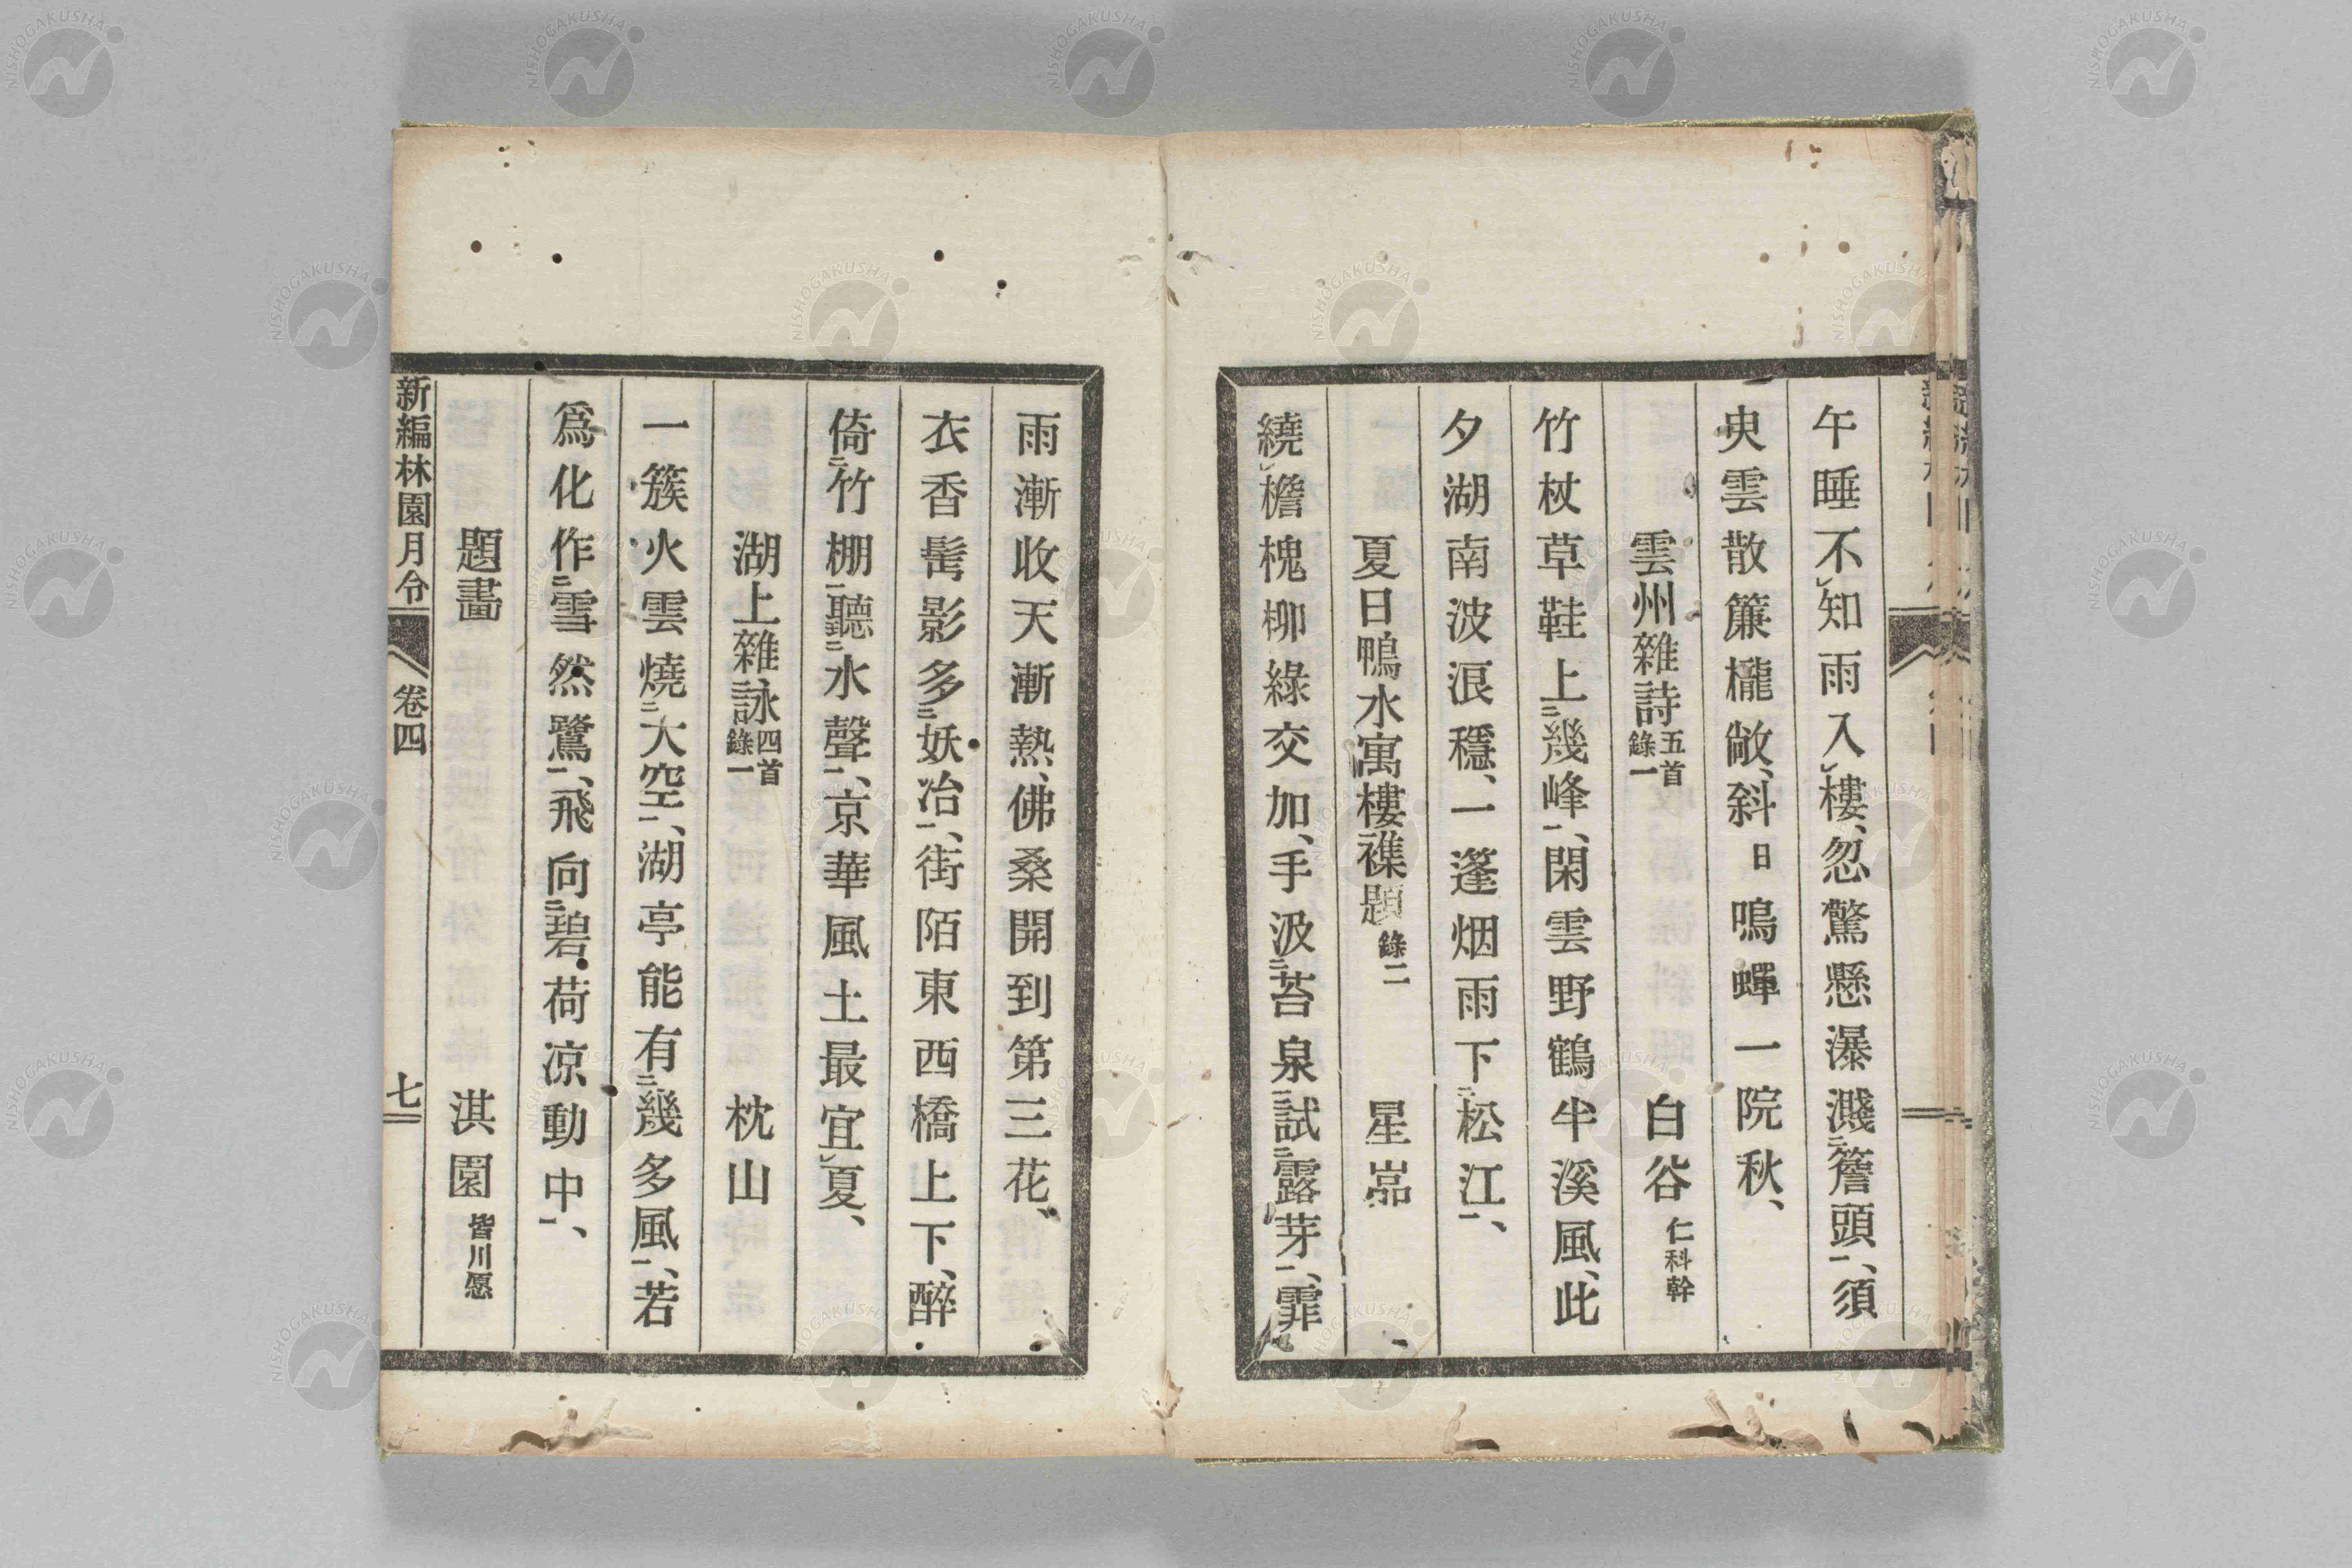 午睡不知雨入樓、忽驚懸瀑濺簷頭、須
臾雲散簾櫳敞、斜日鳴蟬一院秋、
雲州雜詩五首錄一 白谷仁科幹
竹杖草鞋上幾峰、閑雲野鶴半溪風、此
夕湖南波浪穩、一篷烟雨下松江、
夏日鴨水寓樓襍題錄二 星巖
繞檐槐柳綠交加、手汲苔泉試露芽、霏
雨漸收天漸熱、佛桑開到第三花、
衣香髩影多妖冶、街陌東西橋上下、醉
倚竹棚聽水聲、京華風土最宜夏、
湖上雜詠四首錄一 枕山
一簇火雲燒大空、湖亭能有幾多風、若
爲化作雪然鷺、飛向碧荷凉動中、
題畵 淇園皆川愿
新編林園月令 卷四 七
NISHOGAKUSHA